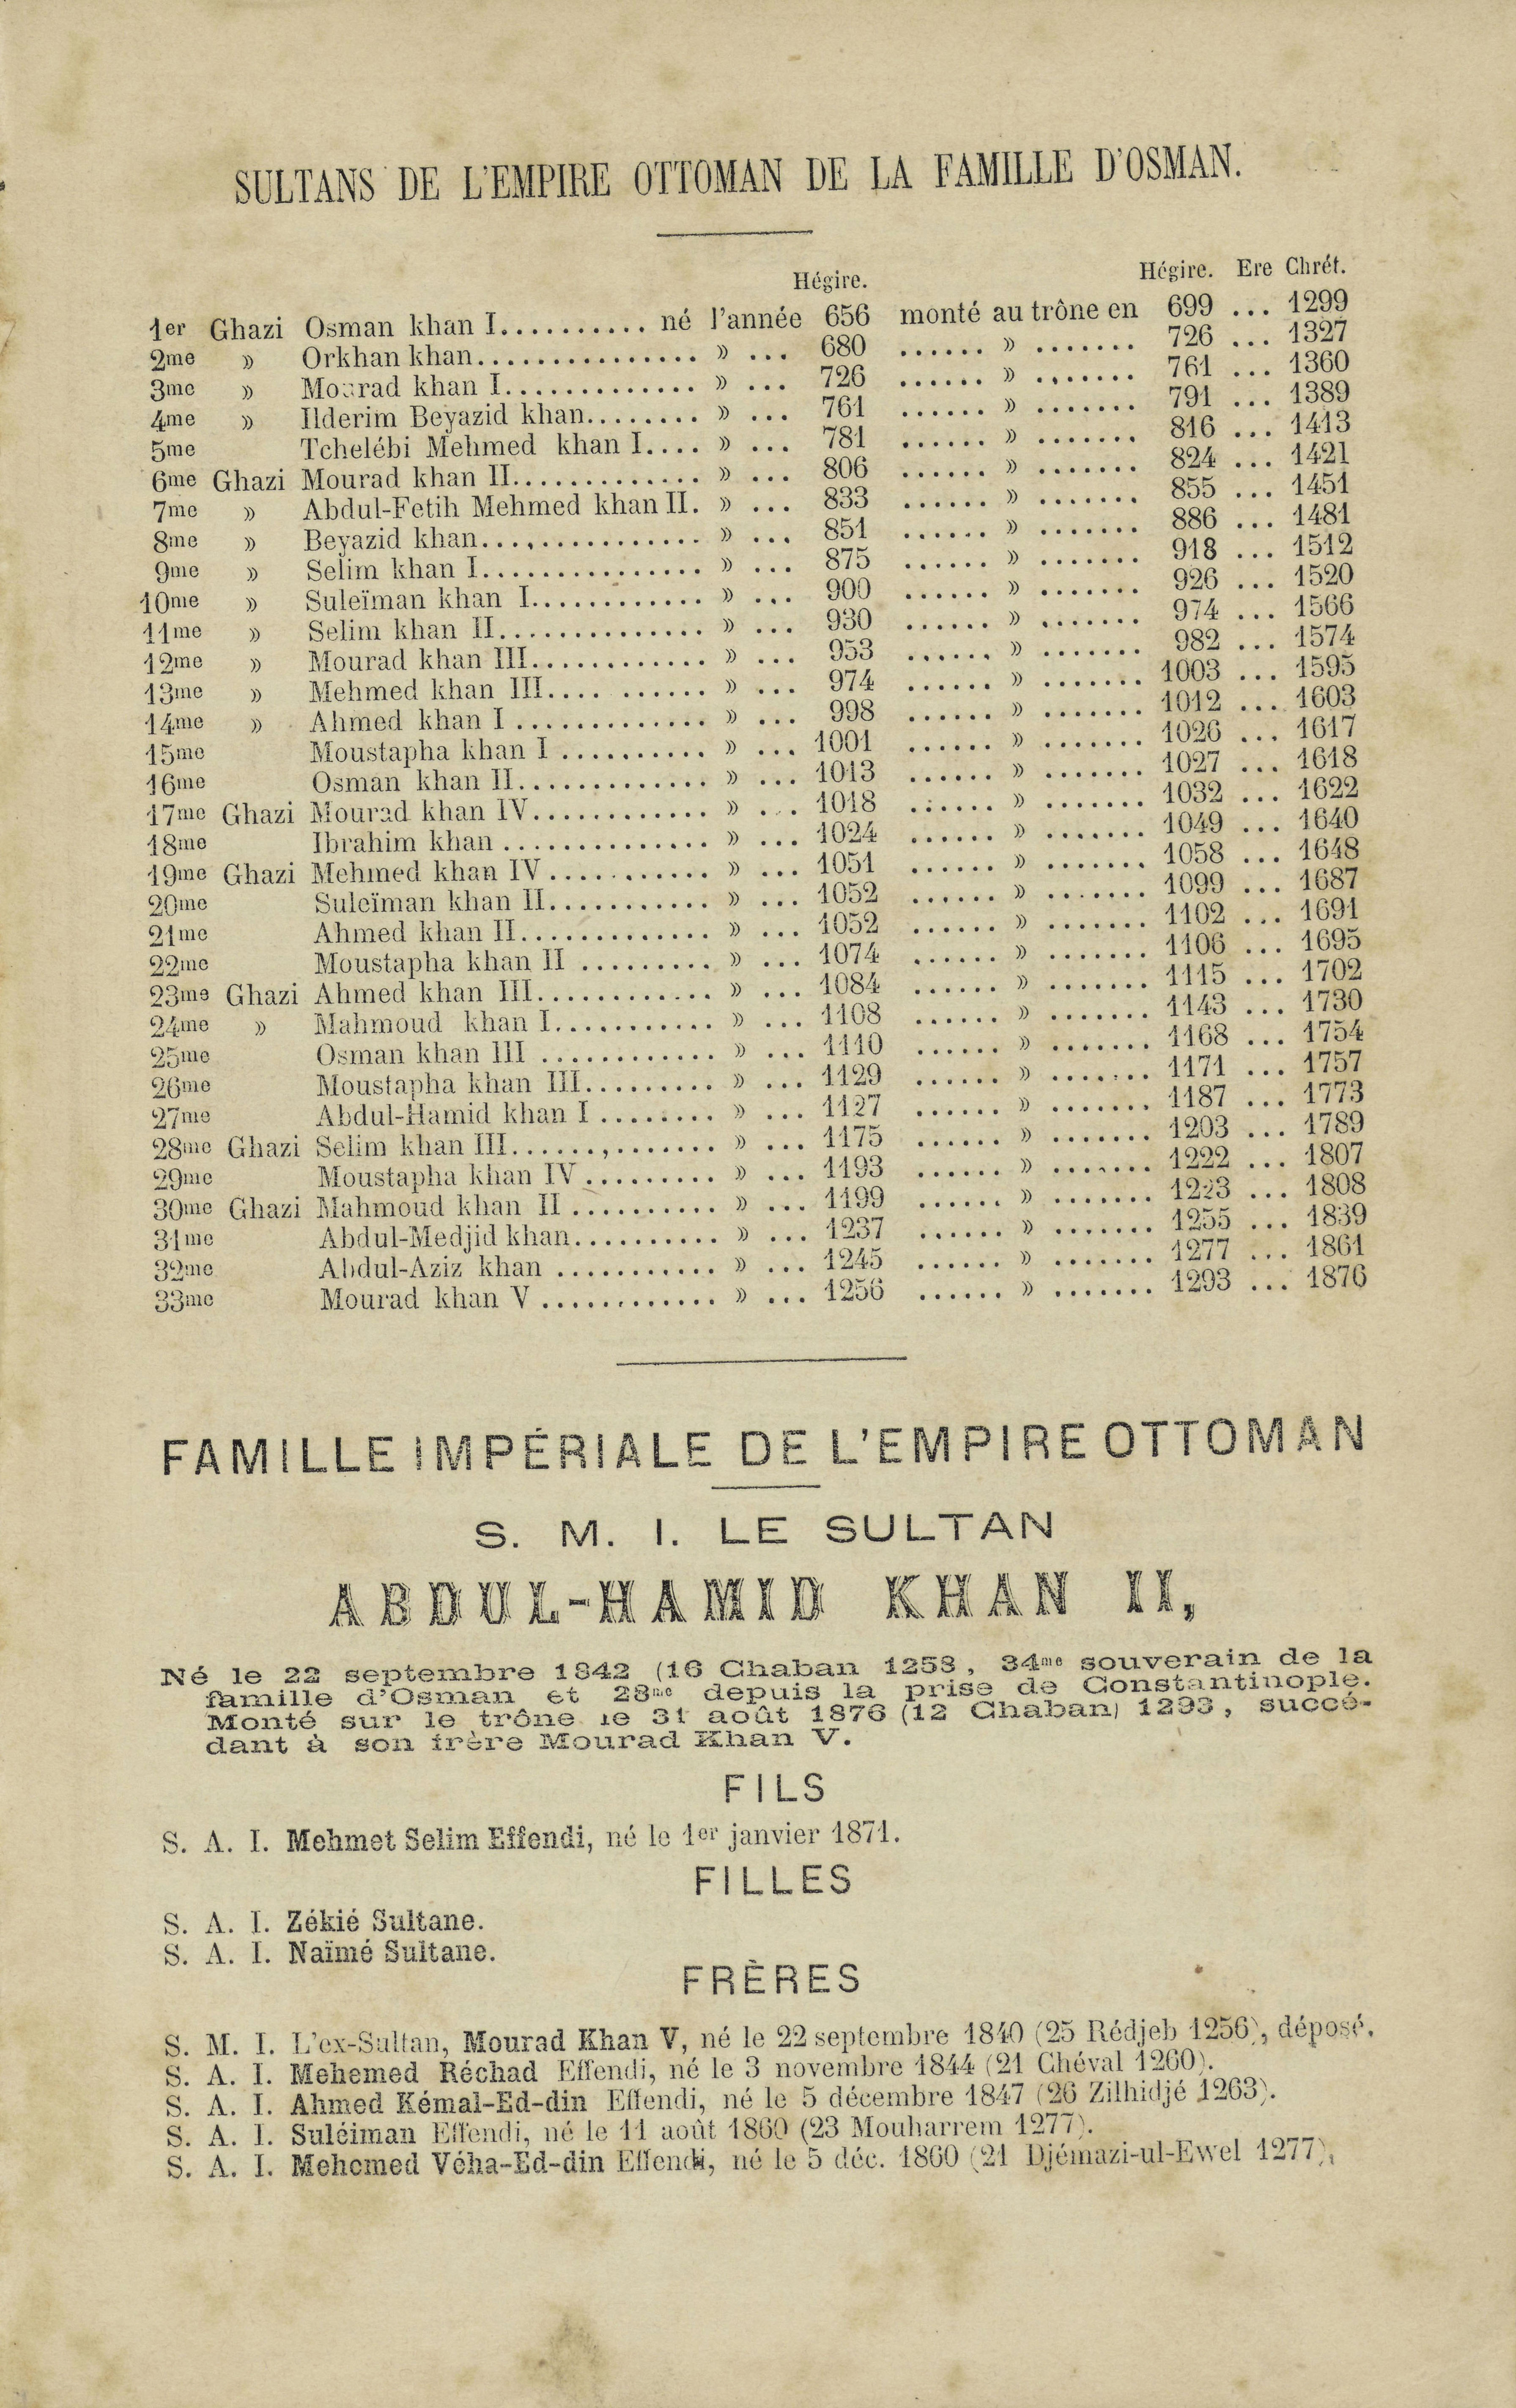 SULTANS DE L'EMPIRE OTTOMAN DE LA FAMILLE D'OSMAN.
Hégire. Hégire. Ere Chrét.
1er Ghazi Osman khan I.......... né l'année 656 monté au trône en 699 ... 1299
2me » Orkhan khan............... » ... 680 ...... » ....... 726 ... 1327
3me » Mourad khan I............. » ... 726 ...... » ....... 761 ... 1360
4me » Ilderim Beyazid khan........ » ... 761 ...... » ....... 791 ... 1389
5me Tchelébi Mehmed khan I.... » ... 781 ...... » ....... 816 ... 1413
6me Ghazi Mourad khan II............. » ... 806 ...... » ....... 824 ... 1421
7me » Abdul-Fetih Mehmed khan II. » ... 833 ...... » ....... 855 ... 1451
8me » Beyazid khan............... » ... 851 ...... » ....... 886 ... 1481
9me » Selim khan I............... » ... 875 ...... » ....... 918 ... 1512
10me » Suleïman khan I............ » ... 900 ...... » ....... 926 ... 1520
11me » Selim khan II.............. » ... 930 ...... » ....... 974 ... 1566
12me » Mourad khan III............ » ... 953 ...... » ....... 982 ... 1574
13me » Mehmed khan III.... ...... » ... 974 ...... » ....... 1003 ... 1595
14me » Ahmed khan I ............. » ... 998 ...... » ....... 1012 ... 1603
15me Moustapha khan I .......... » ... 1001 ...... » ....... 1026 ... 1617
16me Osman khan II............. » ... 1013 ...... » ....... 1027 ... 1618
17me Ghazi Mourad khan IV............ » ... 1018 ...... » ....... 1032 ... 1622
18me Ibrahim khan .............. » ... 1024 ...... » ....... 1049 ... 1640
19me Ghazi Mehmed khan IV........... » ... 1051 ...... » ....... 1058 ... 1648
20me Suleïman khan II........... » ... 1052 ...... » ....... 1099 ... 1687
21me Ahmed khan II............. » ... 1052 ...... » ....... 1102 ... 1691
22me Moustapha khan II ......... » ... 1074 ...... » ....... 1106 ... 1695
23me Ghazi Ahmed khan III............ » ... 1084 ...... » ....... 1115 ... 1702
24me » Mahmoud khan I........... » ... 1108 ...... » ....... 1143 ... 1730
25me Osman khan III ............ » ... 1110 ...... » ....... 1168 ... 1754
26me Moustapha khan III......... » ... 1129 ...... » ....... 1171 ... 1757
27me Abdul-Hamid khan I ........ » ... 1127 ...... » ....... 1187 ... 1773
28me Ghazi Selim khan III.............. » ... 1175 ...... » ....... 1203 ... 1789
29me Moustapha khan IV ......... » ... 1193 ...... » ....... 1222 ... 1807
30me Ghazi Mahmoud khan II .......... » ... 1199 ...... » ....... 1223 ... 1808
31me Abdul-Medjid khan.......... » ... 1237 ...... » ....... 1255 ... 1839
32me Abdul-Aziz khan ........... » ... 1245 ...... » ....... 1277 ... 1861
33me Mourad khan V ............ » ... 1256 ...... » ....... 1293 ... 1876
FAMILLE IMPÉRIALE DE L'EMPIRE OTTOMAN
S. M. I. LE SULTAN
ABDUL-HAMID KHAN II,
Né le 22 septembre 1842 (16 Chaban 1258, 34me souverain de la
famille d'Osman et 28me depuis la prise de Constantinople.
Monté sur le trône le 31 août 1876 (12 Chaban) 1293, succé-
dant à son frère Mourad Khan V.
FILS
S. A. I. Mehmet Selim Effendi, né le 1er janvier 1871.
FILLES
S. A. I. Zékié Sultane.
S. A. I. Naïmé Sultane.
FRÈRES
S. M. I. L'ex-Sultan, Mourad Khan V, né le 22 septembre 1840 (25 Rédjeb 1256), déposé.
S. A. I. Mehemed Réchad Effendi, né le 3 novembre 1844 (21 Chéval 1260).
S. A. I. Ahmed Kémal-Ed-din Effendi, né le 5 décembre 1847 (26 Zilhidjé 1263).
S. A. I. Suléiman Effendi, né le 11 août 1860 (23 Mouharrem 1277).
S. A. I. Mehemed Véha-Ed-din Effendi, né le 5 déc. 1860 (21 Djémazi-ul-Ewel 1277),